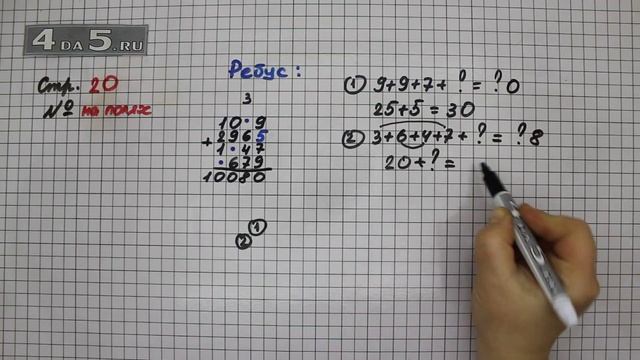 4DA5.RU
Стр. 20
№ на полях
Ребус:
3
10•9
+ 2965
1•47
•679
10080
①
②
① 9+9+7+ ? = ?0
25+5=30
② 3+6+4+7+ ? = ?8
20+?=